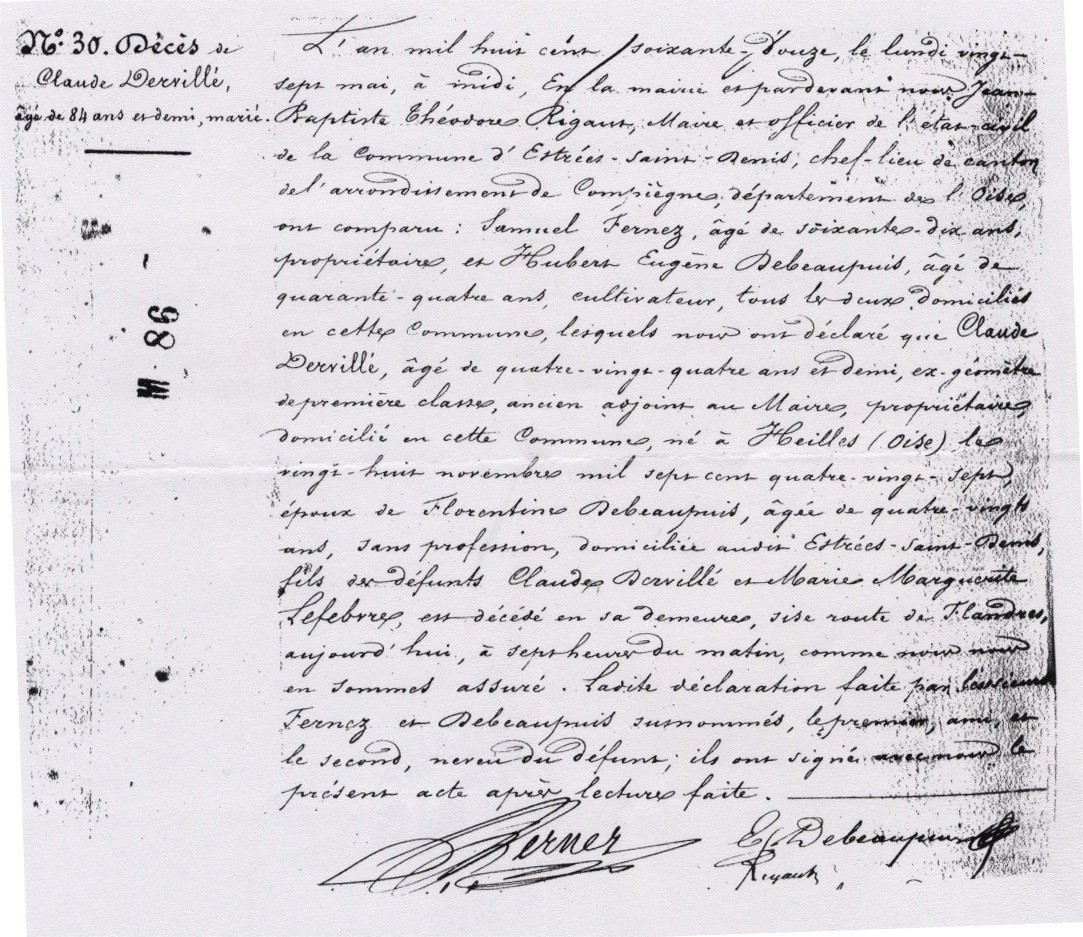 N° 30. Décès de
Claude Dervillé,
âgé de 84 ans et demi, marié.
M 86 -
L'an mil huit cent soixante-douze, le lundi vingt-
sept mai, à midi, En la mairie et pardevant nous Jean-
Baptiste Théodore Rigaut, Maire et officier de l'etat-civil
de la Commune d'Estrées-Saint-Denis, chef-lieu de canton
de l'arrondissement de Compiègne, département de l'Oise,
ont comparu : Samuel Fernez, âgé de soixante-dix ans,
propriétaire, et Hubert Eugène Debeaupuis, âgé de
quarante-quatre ans, cultivateur, tous les deux domiciliés
en cette Commune, lesquels nous ont déclaré que Claude
Dervillé, âgé de quatre-vingt-quatre ans et demi, ex-géomètre
de première classe, ancien adjoint au Maire, propriétaire,
domicilié en cette Commune, né à Heilles (Oise) le
vingt-huit novembre mil sept cent quatre-vingt-sept,
époux de Florentine Debeaupuis, âgée de quatre-vingts
ans, sans profession, domiciliée audit Estrées-Saint-Denis,
fils des défunts Claude Dervillé et Marie Marguerite
Lefebvre, est décédé en sa demeure, sise route de Flandres,
aujourd'hui, à sept heures du matin, comme nous nous
en sommes assuré. Ladite déclaration faite par les sieurs
Fernez et Debeaupuis susnommés, le premier, ami, et
le second, neveu du défunt; ils ont signé avec nous le
présent acte après lecture faite.
Fernez
E. Debeaupuis
Rigaut